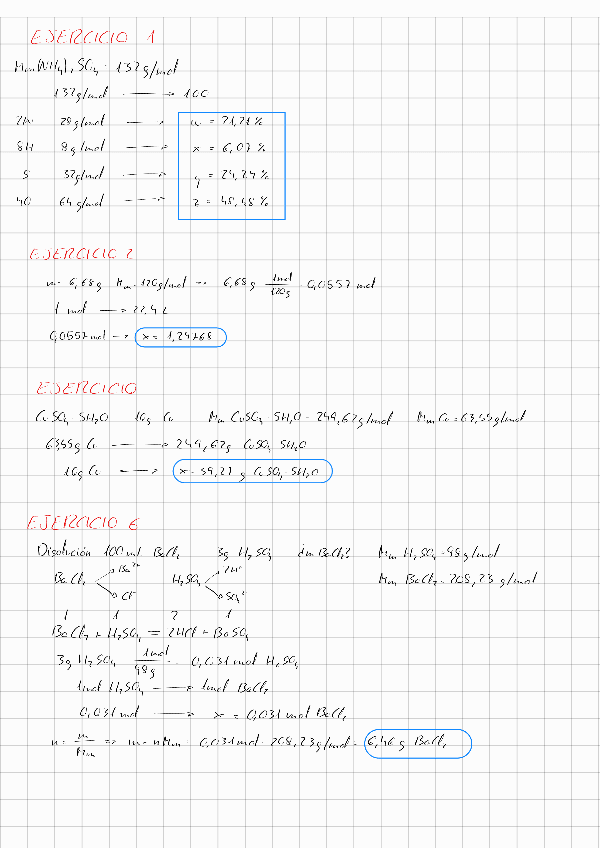 EJERCICIO 1
Mm (NH4)2SO4 = 132 g/mol
132 g/mol ⟶ 100
2N 28 g/mol ⟶ w = 21,21 %
8H 8 g/mol ⟶ x = 6,07 %
S 32 g/mol ⟶ y = 24,24 %
4O 64 g/mol ⟶ z = 48,48 %
EJERCICIO 2
m = 6,68 g Mm = 120 g/mol ⟶ 6,68 g · 1 mol / 120 g = 0,0557 mol
1 mol ⟶ 22,4 L
0,0557 mol ⟶ x = 1,24768
EJERCICIO
CuSO4 · 5H2O 16 g Cu Mm CuSO4 · 5H2O = 249,67 g/mol Mm Cu = 63,55 g/mol
63,55 g Cu ⟶ 249,67 g CuSO4 · 5H2O
16 g Cu ⟶ x = 59,27 g CuSO4 · 5H2O
EJERCICIO 6
Disolución 100 ml BaCl2 3g H2SO4 ¿m BaCl2? Mm H2SO4 = 98 g/mol
BaCl2 Ba2+ Cl- H2SO4 2H+ SO4 2- Mm BaCl2 = 208,23 g/mol
1 1 2 1
BaCl2 + H2SO4 = 2HCl + BaSO4
3g H2SO4 · 1 mol / 98 g = 0,031 mol H2SO4
1 mol H2SO4 ⟶ 1 mol BaCl2
0,031 mol ⟶ x = 0,031 mol BaCl2
n = m / Mm => m = n·Mm = 0,031 mol · 208,23 g/mol = 6,46 g BaCl2